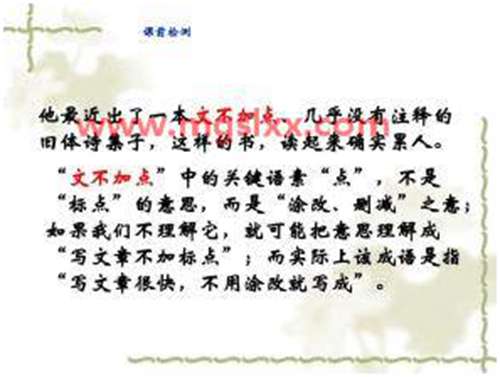 课前检测
他最近出了一本文不加点、几乎没有注释的
旧体诗集子，这样的书，读起来确实累人。
www.mgslxx.com
“文不加点”中的关键语素“点”，不是
“标点”的意思，而是“涂改、删减”之意；
如果我们不理解它，就可能把意思理解成
“写文章不加标点”；而实际上该成语是指
“写文章很快，不用涂改就写成”。